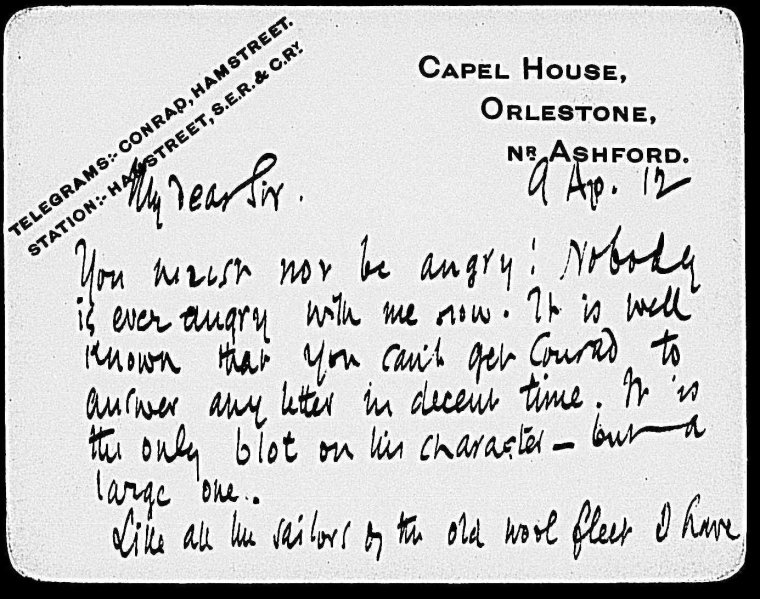 TELEGRAMS:- CONRAD, HAMSTREET.
STATION:- HAMSTREET, S.E.R. & C.RY.
CAPEL HOUSE,
ORLESTONE,
NR ASHFORD.
9 Ap. 12
My dear Sir.
You must not be angry! Nobody
is ever angry with me now. It is well
known that you can't get Conrad to
answer any letter in decent time. It is
the only blot on his character — but a
large one.
Like all the sailors of the old wool fleet I have